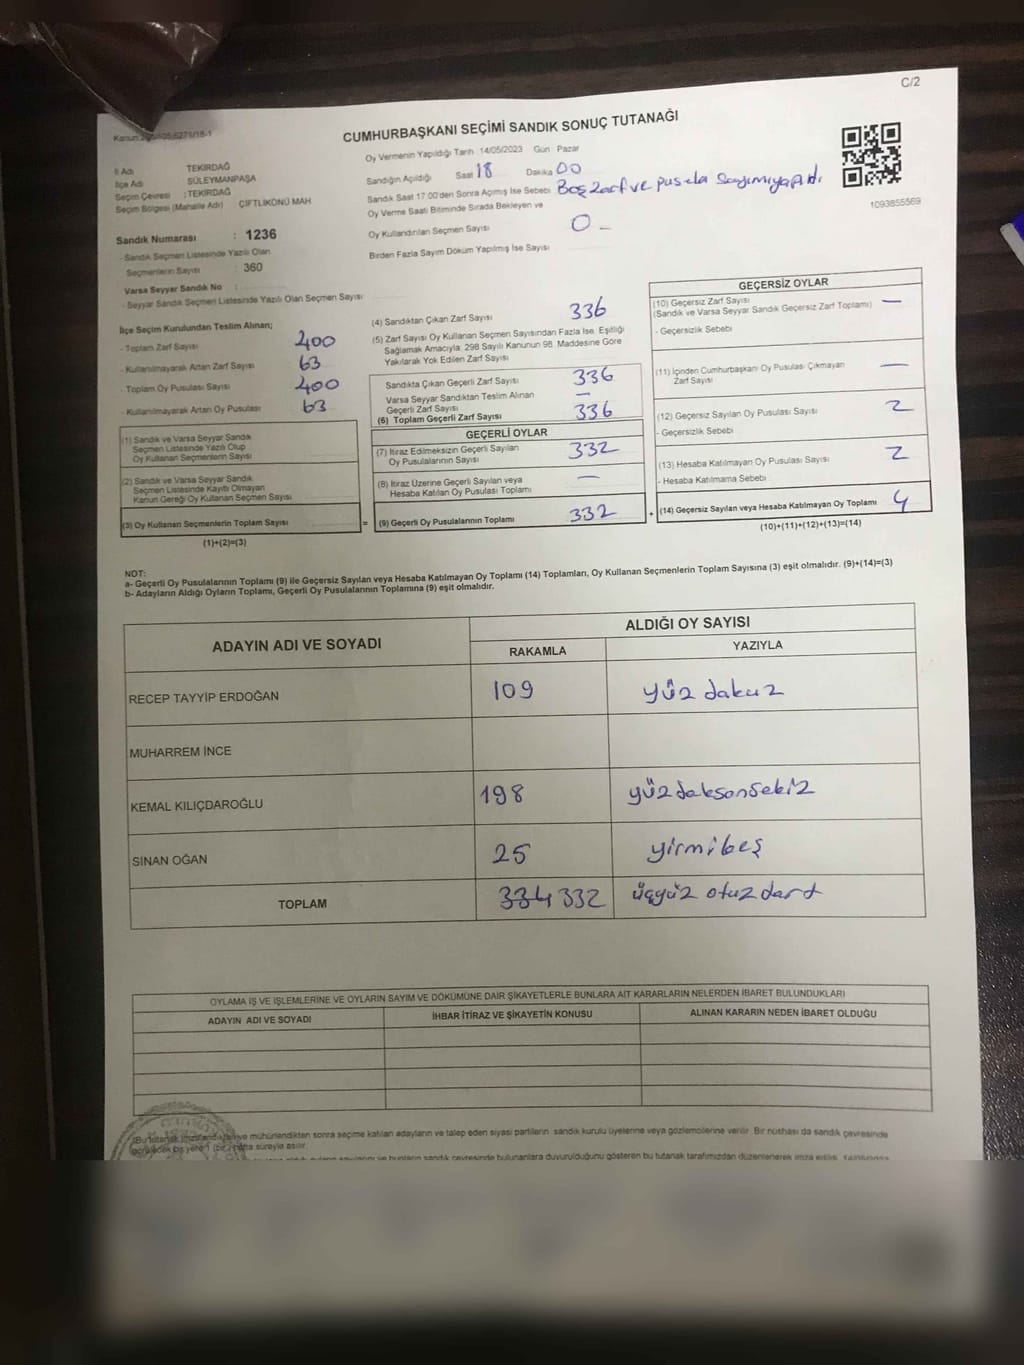 C/2
CUMHURBAŞKANI SEÇİMİ SANDIK SONUÇ TUTANAĞI
İl Adı TEKİRDAĞ
İlçe Adı SÜLEYMANPAŞA
Seçim Çevresi : TEKİRDAĞ
Seçim Bölgesi (Mahalle Adı) ÇİFTLİKÖNÜ MAH
Sandık Numarası : 1236
- Sandık Seçmen Listesinde Yazılı Olan
Seçmenlerin Sayısı : 360
Varsa Seyyar Sandık No :
- Seyyar Sandık Seçmen Listesinde Yazılı Olan Seçmen Sayısı
Oy Vermenin Yapıldığı Tarih 14/05/2023 Gün : Pazar
Sandığın Açıldığı Saat 18 Dakika 00
Sandık Saat 17:00'den Sonra Açımış İse Sebebi Boş zarf ve pusula sayımı yapıldı
Oy Verme Saati Bitiminde Sırada Bekleyen ve
Oy Kullandırılan Seçmen Sayısı 0 -
Birden Fazla Sayım Döküm Yapılmış İse Sayısı
1093855569
İlçe Seçim Kurulundan Teslim Alınan;
- Toplam Zarf Sayısı 400
- Kullanılmayarak Artan Zarf Sayısı 63
- Toplam Oy Pusulası Sayısı 400
- Kullanılmayarak Artan Oy Pusulası 63
(1) Sandık ve Varsa Seyyar Sandık
Seçmen Listesinde Yazılı Olup
Oy Kullanan Seçmenlerin Sayısı
(2) Sandık ve Varsa Seyyar Sandık
Seçmen Listesinde Kayıtlı Olmayan
Kanun Gereği Oy Kullanan Seçmen Sayısı
(3) Oy Kullanan Seçmenlerin Toplam Sayısı =
(1)+(2)=(3)
(4) Sandıktan Çıkan Zarf Sayısı 336
(5) Zarf Sayısı Oy Kullanan Seçmen Sayısından Fazla İse, Eşitliği
Sağlamak Amacıyla, 298 Sayılı Kanunun 98. Maddesine Göre
Yakılarak Yok Edilen Zarf Sayısı
Sandıkta Çıkan Geçerli Zarf Sayısı 336
Varsa Seyyar Sandıktan Teslim Alınan
Geçerli Zarf Sayısı —
(6) Toplam Geçerli Zarf Sayısı 336
GEÇERLİ OYLAR
(7) İtiraz Edilmeksizin Geçerli Sayılan
Oy Pusulalarının Sayısı 332
(8) İtiraz Üzerine Geçerli Sayılan veya
Hesaba Katılan Oy Pusulası Toplamı —
(9) Geçerli Oy Pusulalarının Toplamı 332 +
GEÇERSİZ OYLAR
(10) Geçersiz Zarf Sayısı —
(Sandık ve Varsa Seyyar Sandık Geçersiz Zarf Toplamı)
- Geçersizlik Sebebi
(11) İçinden Cumhurbaşkanı Oy Pusulası Çıkmayan
Zarf Sayısı —
(12) Geçersiz Sayılan Oy Pusulası Sayısı 2
- Geçersizlik Sebebi
(13) Hesaba Katılmayan Oy Pusulası Sayısı 2
- Hesaba Katılmama Sebebi
(14) Geçersiz Sayılan veya Hesaba Katılmayan Oy Toplamı 4
(10)+(11)+(12)+(13)=(14)
NOT:
a- Geçerli Oy Pusulalarının Toplamı (9) ile Geçersiz Sayılan veya Hesaba Katılmayan Oy Toplamı (14) Toplamları, Oy Kullanan Seçmenlerin Toplam Sayısına (3) eşit olmalıdır. (9)+(14)=(3)
b- Adayların Aldığı Oyların Toplamı, Geçerli Oy Pusulalarının Toplamına (9) eşit olmalıdır.
ADAYIN ADI VE SOYADI ALDIĞI OY SAYISI
RAKAMLA YAZIYLA
RECEP TAYYİP ERDOĞAN 109 yüz dokuz
MUHARREM İNCE
KEMAL KILIÇDAROĞLU 198 yüz doksansekiz
SİNAN OĞAN 25 yirmibeş
TOPLAM 334 332 üçyüz otuz dört
OYLAMA İŞ VE İŞLEMLERİNE VE OYLARIN SAYIM VE DÖKÜMÜNE DAİR ŞİKAYETLERLE BUNLARA AİT KARARLARIN NELERDEN İBARET BULUNDUKLARI
ADAYIN ADI VE SOYADI İHBAR İTİRAZ VE ŞİKAYETİN KONUSU ALINAN KARARIN NEDEN İBARET OLDUĞU
mühürlendikten sonra seçime katılan adayların ve talep eden siyasi partilerin sandık kurulu üyelerine veya gözlemcilerine verilir. Bir nüshası da sandık çevresinde
süreyle asılır.